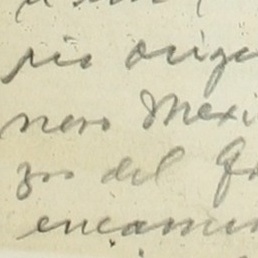 rio orige
nero Mexi
zos del G
encamin